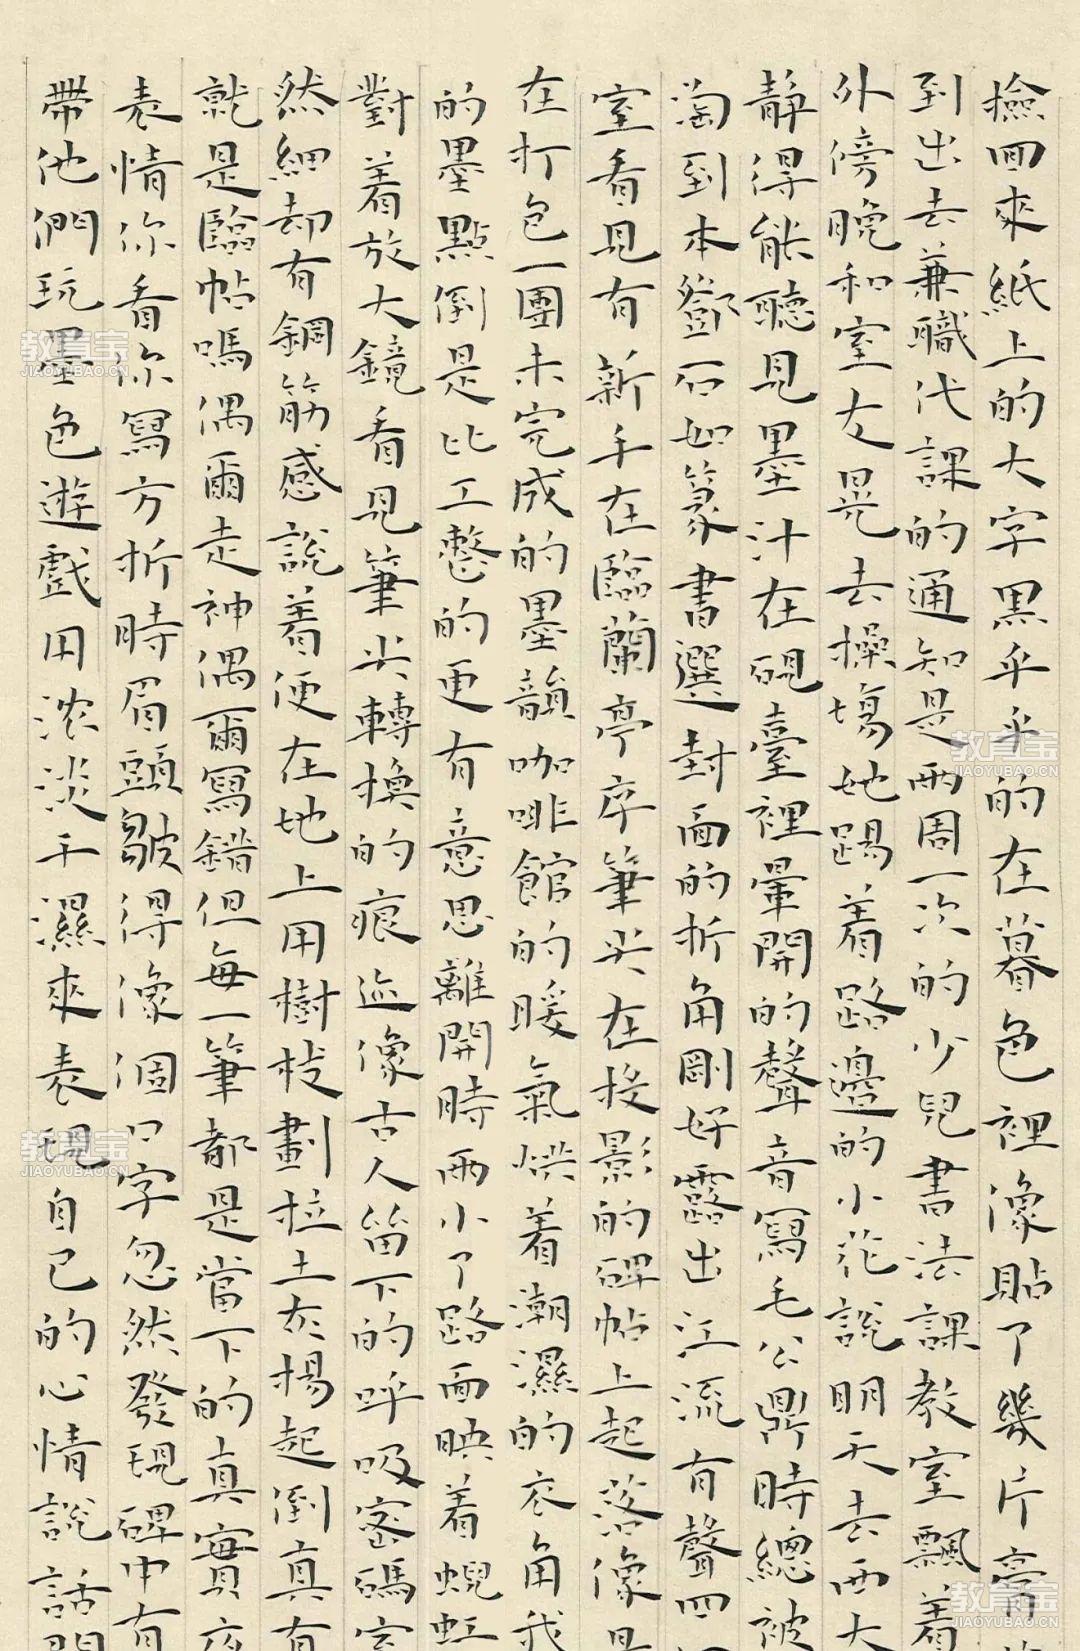 撿回來紙上的大字黑乎乎的在暮色裡像貼了幾片膏
到出去兼職代課的通知是兩周一次的少兒書法課教室飄着
外傍晚和室友晃去操場她踢着路邊的小花說明天去西大
静得能聽見墨汁在硯臺裡暈開的聲音寫毛公鼎時總被
淘到本鄧石如篆書選封面的折角剛好露出江流有聲四
室看見有新手在臨蘭亭序筆尖在投影的碑帖上起落像是
在打包一團未完成的墨韻咖啡館的暖氣烘着潮濕的衣角我
的墨點倒是比工整的更有意思離開時雨小了路面映着蜺虹
對着放大鏡看見筆尖轉換的痕迹像古人留下的呼吸密碼室
然細却有鋼筋感說着便在地上用樹枝劃拉土灰揚起倒真有
就是臨帖嗎偶爾走神偶爾寫錯但每一筆都是當下的真實夜
表情你看你寫方折時眉頭皺得像個口字忽然發現碑中有
帶他們玩墨色遊戲用濃淡干濕來表現自己的心情說話間
教育宝
JIAOYUBAO.CN
教育宝
JIAOYUBAO.CN
教育宝
JIAOYUBAO.CN
教育宝
JIAOYUBAO.CN